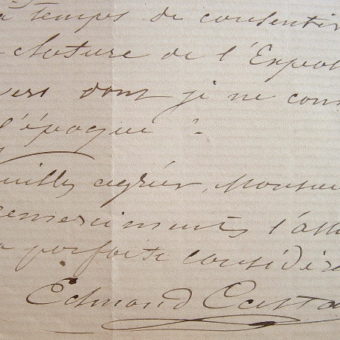 temps de consentir
cloture de l'Expo
dont je ne con
l'époque?
agréer, Monsieu
remerciements l'a
parfaite considéra
Edmond Casta